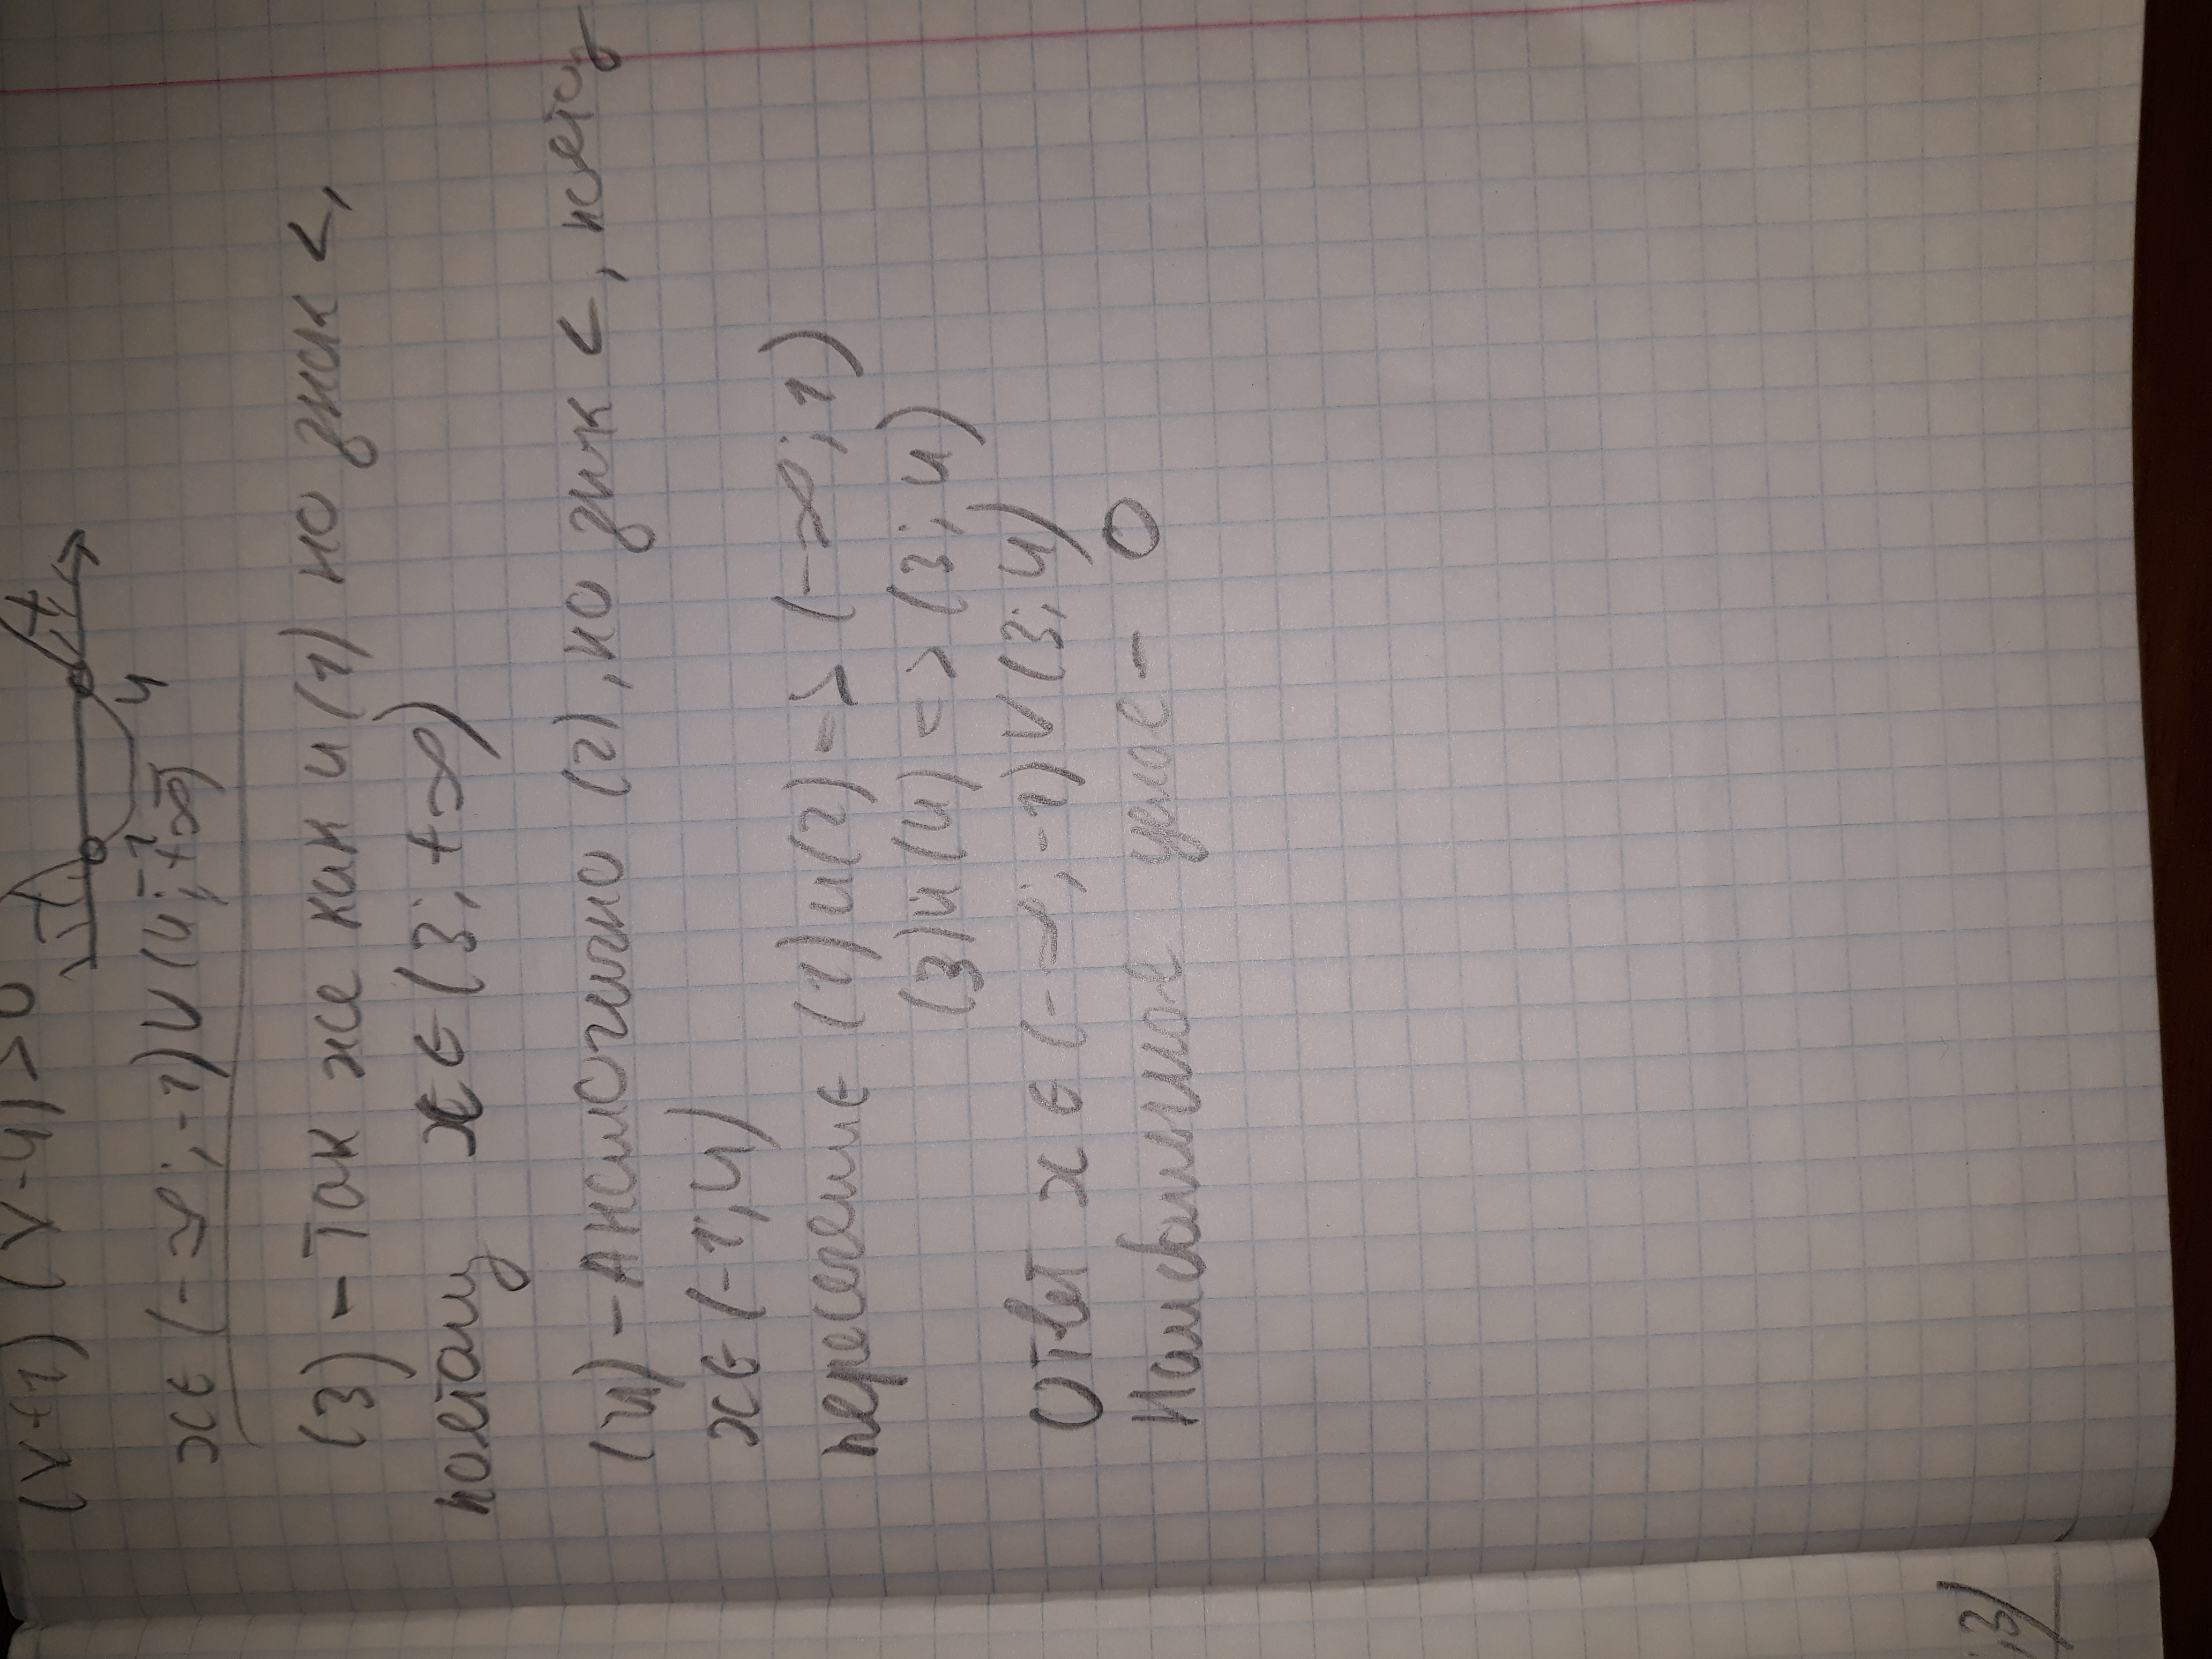 (x+1) (x-4) > 0
-1 4
x ∈ (-∞; -1) ∪ (4; +∞)
(3) - Так же как и (1) но знак <,
поетому x ∈ (3; +∞)
(4) - Аналогично (2), но знак <, поетому
x ∈ (-1; 4)
(1) и (2) => (-∞; 1)
(3) и (4) => (3; 4)
Ответ x ∈ (-∞; -1) ∪ (3; 4)
Наибольшое целое - 0
3)